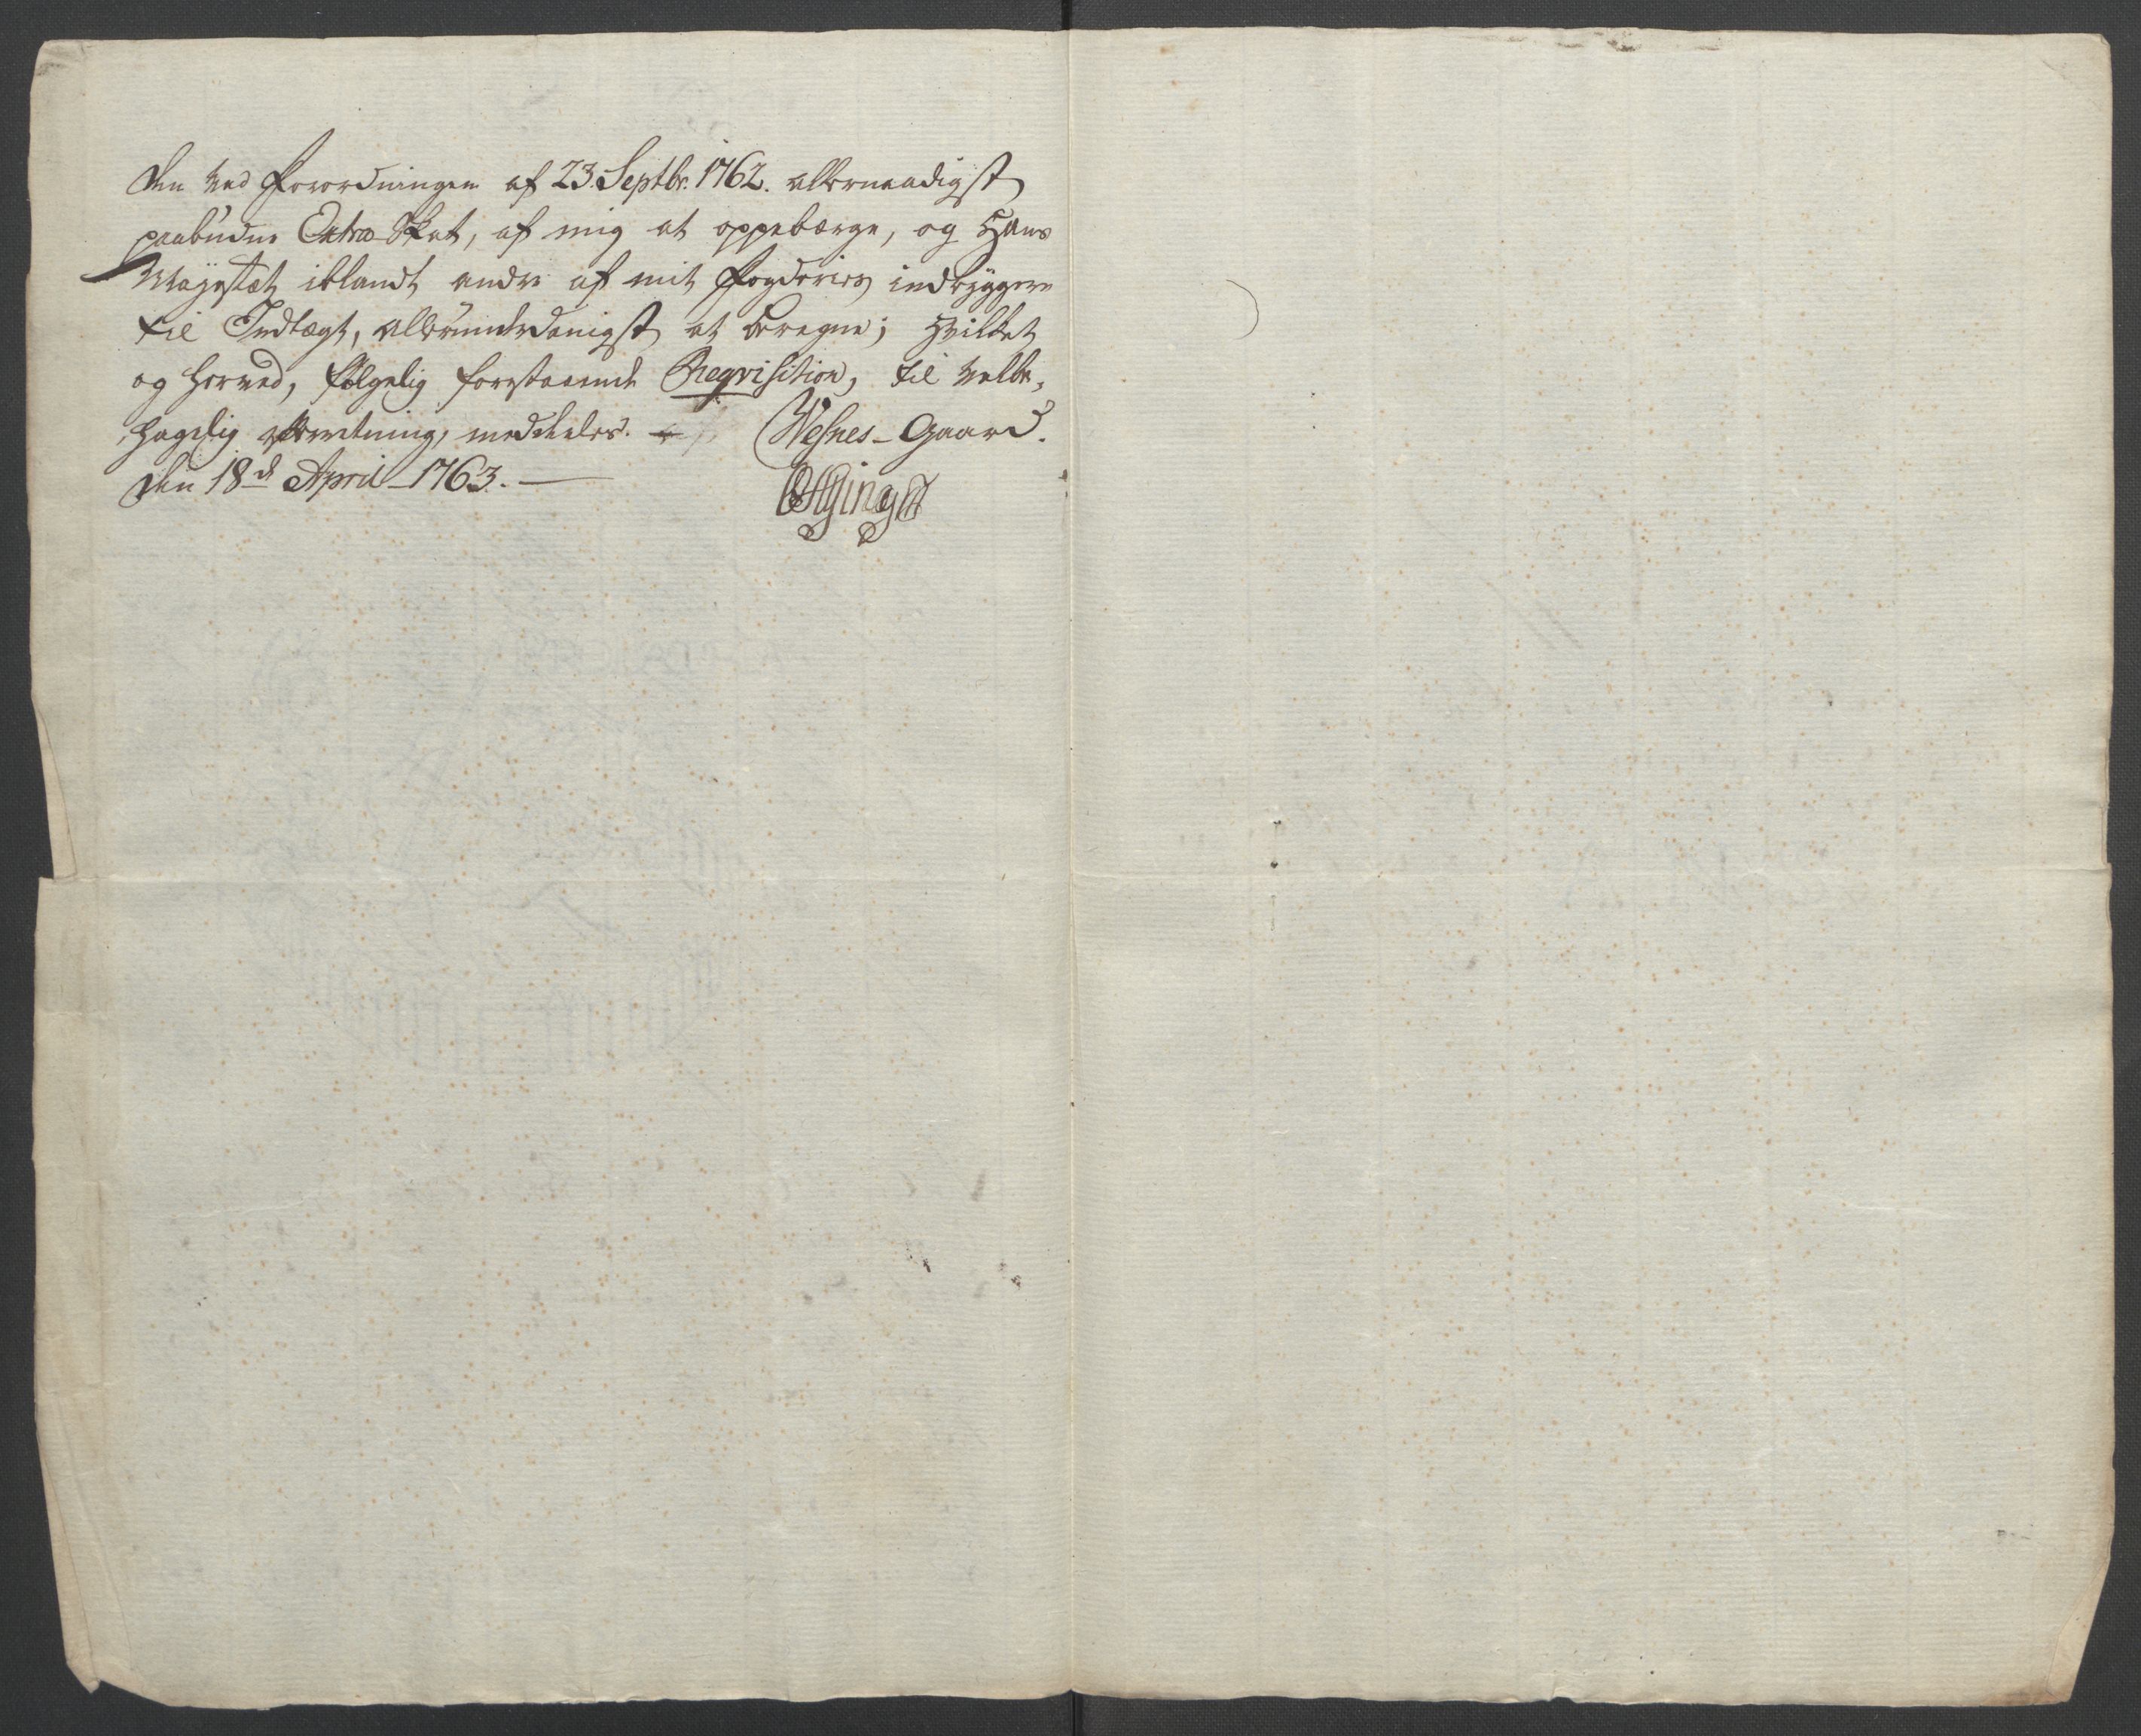 den ved Forordningen af 23. Septbr. 1762. allernaadigst
paabudne Extra Skat, af mig at oppebærge, og Hans
Mayestæt iblandt andre af mit Fogderies indbyggere
til Indtægt, allerunderdanigst at beregne; hvilket
og herved, følgelig forestaaende Reqvisition, til velbe,
hagelig efterretning, meddeeles. Wesnes-Gaard.
den 18d April 1763.